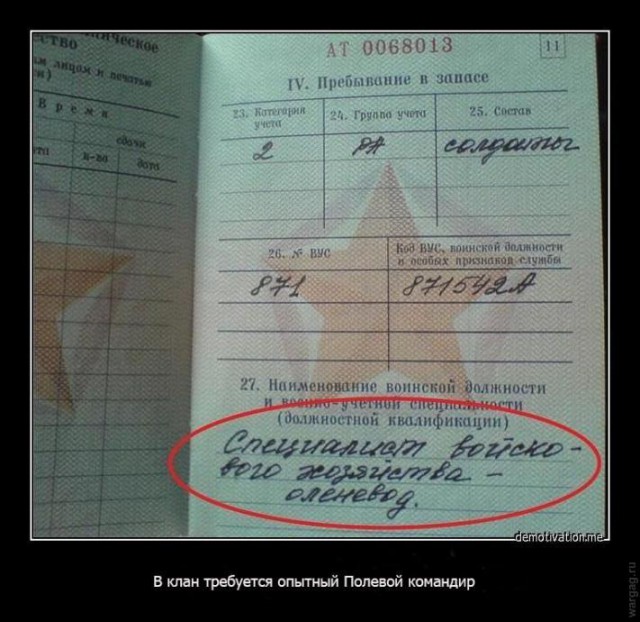 ство
ническое
ым лицом и печатью
Время
сдачи
к-во
дата
АТ 0068013
11
IV. Пребывание в запасе
23. Категория учета
24. Группа учета
25. Состав
2
РА
солдаты
26. № ВУС
Код ВУС, воинской должности и особых признаков службы
871
871542А
27. Наименование воинской должности
и военно-учетной специальности
(должностной квалификации)
Специалист войско-
вого хозяйства -
оленевод.
demotivation.me
В клан требуется опытный Полевой командир
wargag.ru